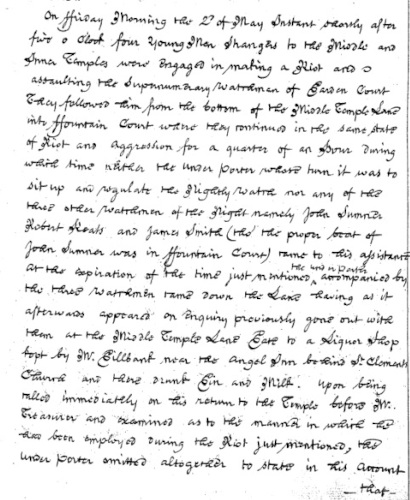 On ffriday Morning the 2d of May Instant shortly after
five o Clock four Young Men Strangers to the Middle and
Inner Temples were Engaged in making a Riot and
assaulting the Supernumerary Watchman of Garden Court
They followed him from the bottom of the Middle Temple Lane
into ffountain Court where they continued in the same state
of Riot and Aggression for a quarter of an Hour during
which time neither the under Porter whose turn it was to
sit up and regulate the Nightly Watch nor any of the
three other Watchmen of the Night namely John Sumner
Robert Keats and James Smith (tho' the proper beat of
John Sumner was in ffountain Court) came to his assistance
At the expiration of the time just mentioned, the under Porter accompanied by
the three Watchmen came down the Lane having as it
afterwards appeared on Enquiry previously gone out with
them at the Middle Temple Lane Gate to a Liquor Shop
kept by Mr. Gillbank near the Angel Inn behind St. Clements
Church and there drunk Gin and Milk. Upon being
called immediately on his return to the Temple before Mr.
Treasurer and examined as to the manner in which he
had been employed during the Riot just mentioned, the
under Porter omitted altogether to state in his Account
— that —